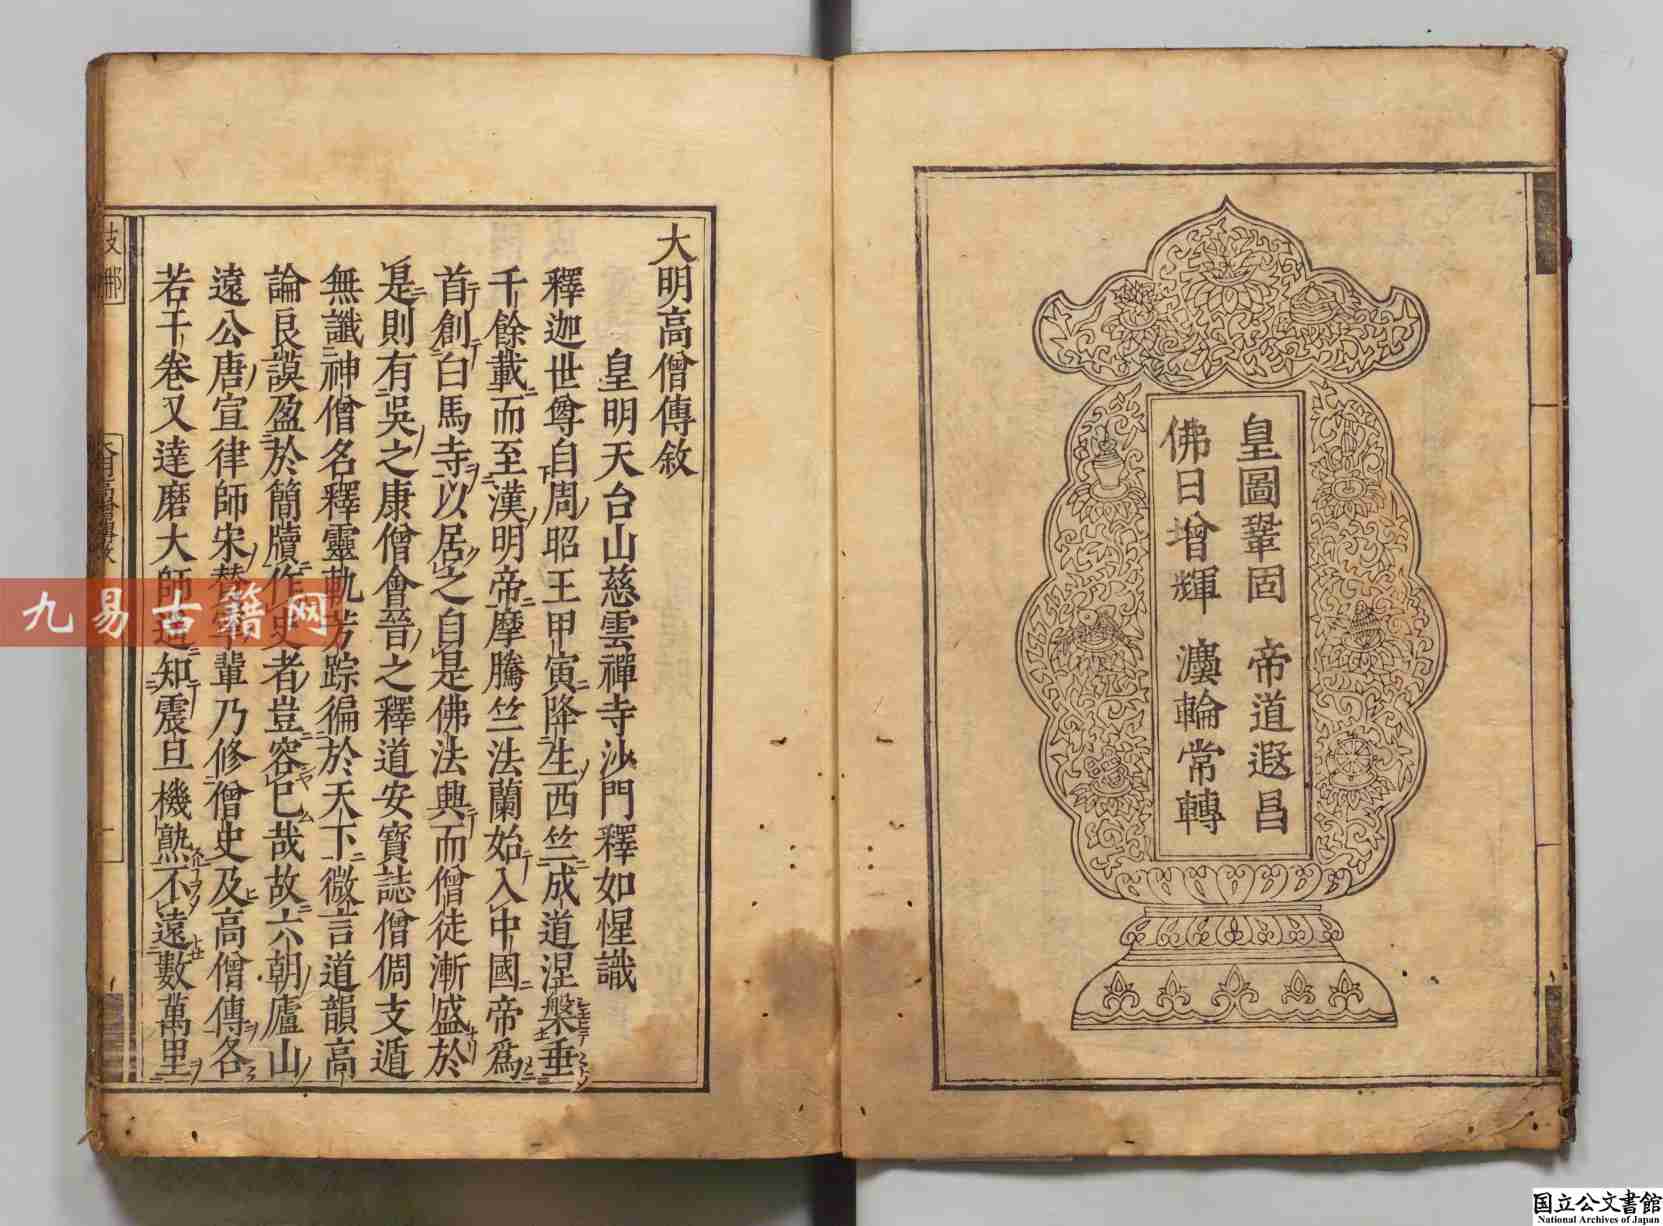 皇圖鞏固　帝道遐昌
佛日增輝　灋輪常轉
大明高僧傳敘
皇明天台山慈雲禪寺沙門釋如惺識
釋迦世尊自周昭王甲寅降生西竺成道涅槃垂
千餘載而至漢明帝摩騰竺法蘭始入中國帝爲
首創白馬寺以居之自是佛法興而僧徒漸盛於
是則有吳之康僧會晉之釋道安寶誌僧倜支遁
無讖神僧名釋靈軌芳踪徧於天下微言道韻高
論良謨盈於簡牘作史者豈容已哉故六朝廬山
遠公唐宣律師宋贊寧輩乃修僧史及高僧傳各
若干卷又達磨大師逆知震旦機熟不遠數萬里
九易古籍网
国立公文書館
National Archives of Japan